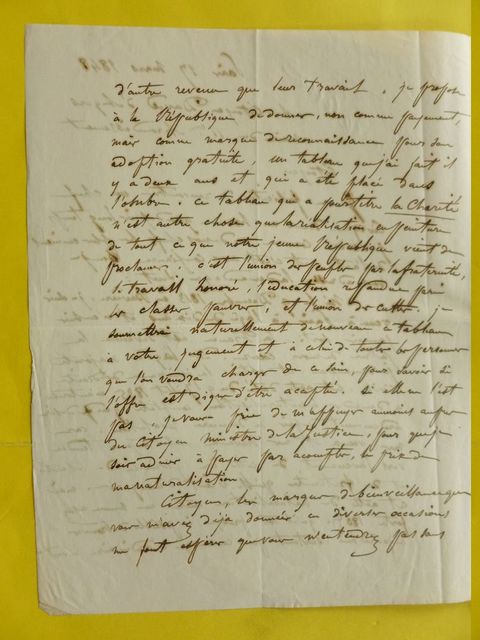 d'autre revenu que leur travail. je propose
à la République de donner, non comme payement,
mais comme marque de reconnaissance, pour son
adoption gratuite, un tableau que j'ai fait il
y a deux ans et qui a été placé dans
l'ombre. ce tableau qui a pour titre la Charité
n'est autre chose que la réalisation en peinture
de tout ce que notre jeune République vient de
proclamer; c'est l'union des peuples par la fraternité,
le travail honoré, l'éducation répandue parmi
les classes pauvres, et l'union des cultes. je
soumettrai naturellement de nouveau ce tableau
à votre jugement et à celui de toutes les personnes
que l'on voudra charger de ce soin, pour savoir si
l'offre est digne d'être acceptée. si elle ne l'est
pas, je vous prie de m'appuyer au moins auprès
du Citoyen ministre de la Justice, pour que je
sois admis à payer par acompte, le prix de
ma naturalisation
Citoyen, les marques de bienveillance que
vous m'avez déjà données en diverses occasions
me font espérer que vous n'entendrez pas sans